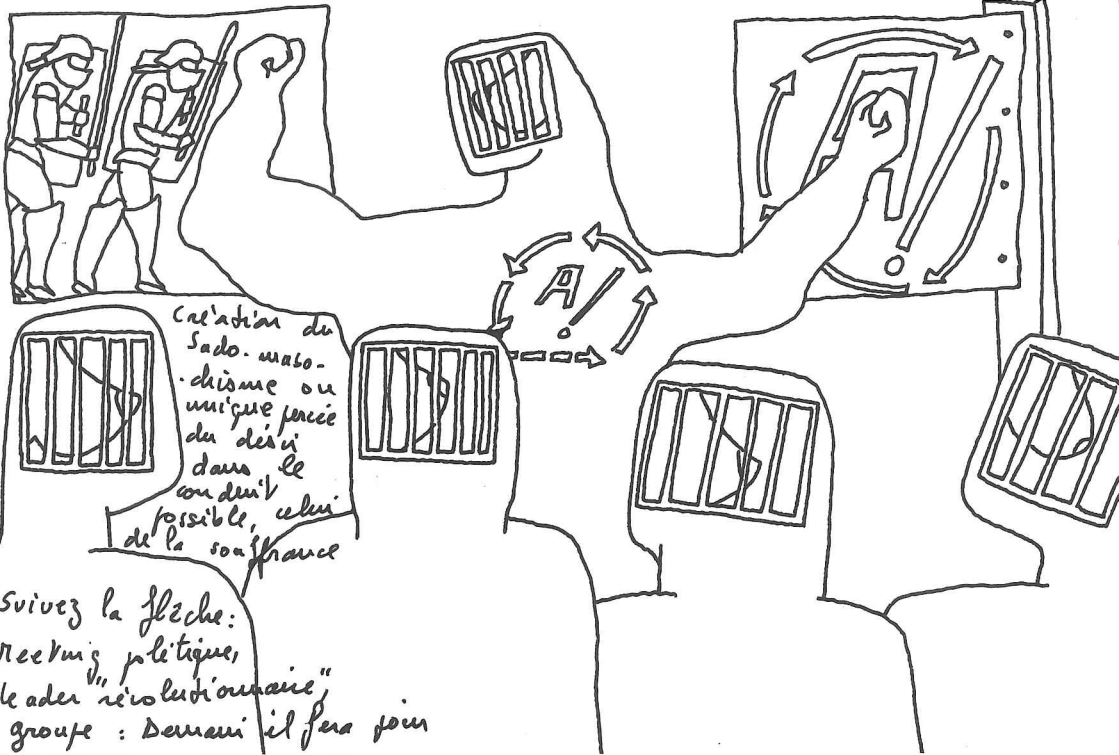 A!
Création du
Sado-maso-
-chisme ou
unique percée
du désir
dans le
conduit
possible, celui
de la souffrance
Suivez la flèche:
meeting politique,
leader "révolutionnaire",
groupe : Demain il fera jour